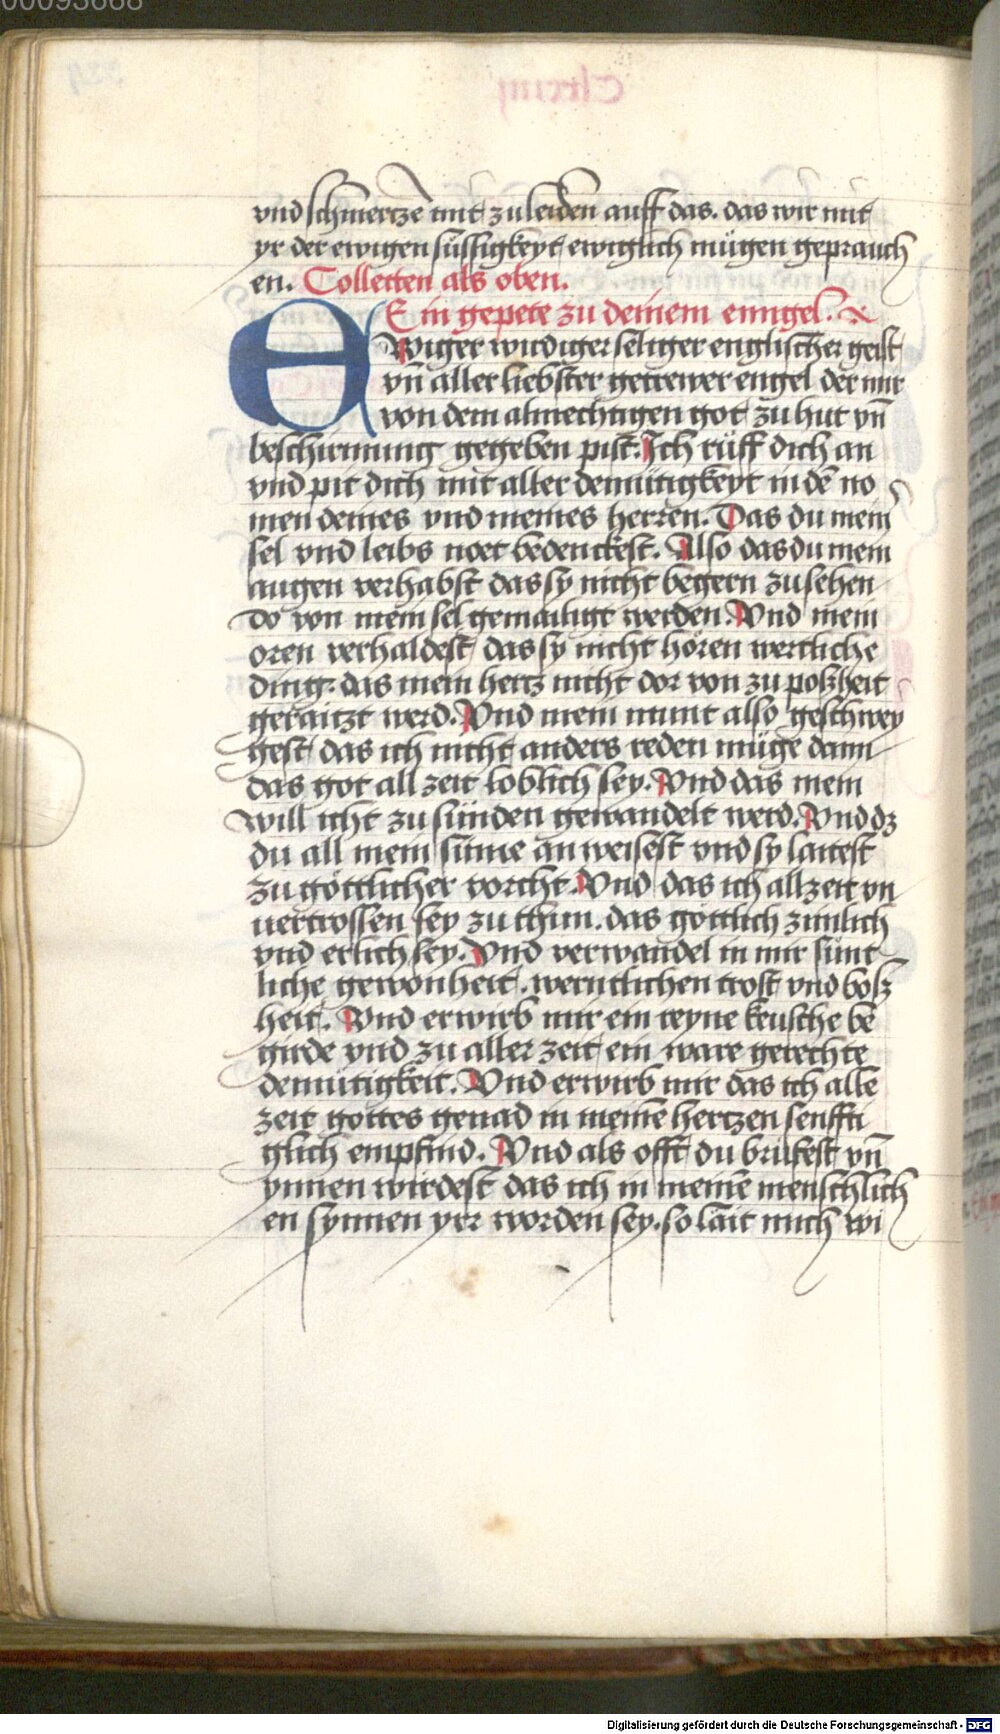 vnd schmertze mit zu leiden auff das. das wir mit
yr der ewigen süssigkeyt ewiglich mügen geprauch
en. Collecten als oben.
Ein gepete zu deinem enngel.
EWiger wirdiger seliger englischer geist
vn̄ aller liebster getrewer engel der mir
von dem almechtigen got zu hut vn̄
beschirmung gegeben pist. Ich rüff dich an
vnd pit dich mit aller demütigkeyt in dē no
men deines vnd meines herren. Das du mein
sel vnd leibs noet bedenckest. Also das du mein
augen verhabst das sy nicht begern zu sehen
do von mein sel gemailigt werden. Vnd mein
oren verhaldest das sy nicht hören wertliche
ding. das mein hertz nicht dor von zu poßheit
geraitzt werd. Vnd mein munt also geschwey
gest das ich nicht anders reden müge dann
das got all zeit loblich sey. Vnd das mein
will icht zu sünden gewandelt werd. Vnd dz
du all mein sinne an weisest vnd sy laitest
zu göttlicher vorcht. Vnd das ich allzeit vn
uertrossen sey zu thun. das göttlich zimlich
vnd erlich sey. Vnd verwandel in mir sünt
liche gewonheit. werntlichen trost vnd boß
heit. Vnd erwirb mir ein reyne keusche be
girde vnd zu aller zeit ein ware gerechte
demütigkeit. Vnd erwirb mir das ich alle
zeit gottes genad in meinē hertzen senffti
glich empfind. Vnd als offt du brüfest vn̄
ynnen wirdest das ich in meinē menschlich
en synnen yrr worden sey. so lait mich wi
Digitalisierung gefördert durch die Deutsche Forschungsgemeinschaft - DFG